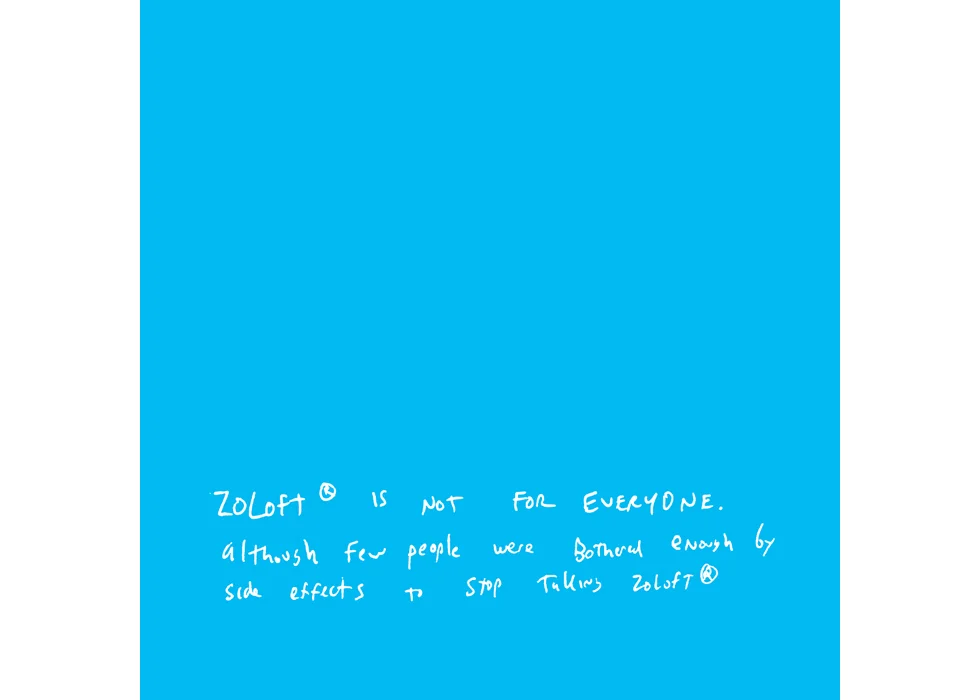 ZOLOFT® IS NOT FOR EVERYONE.
Although few people were Bothered enough by
side effects to STOP Taking ZOLOFT®